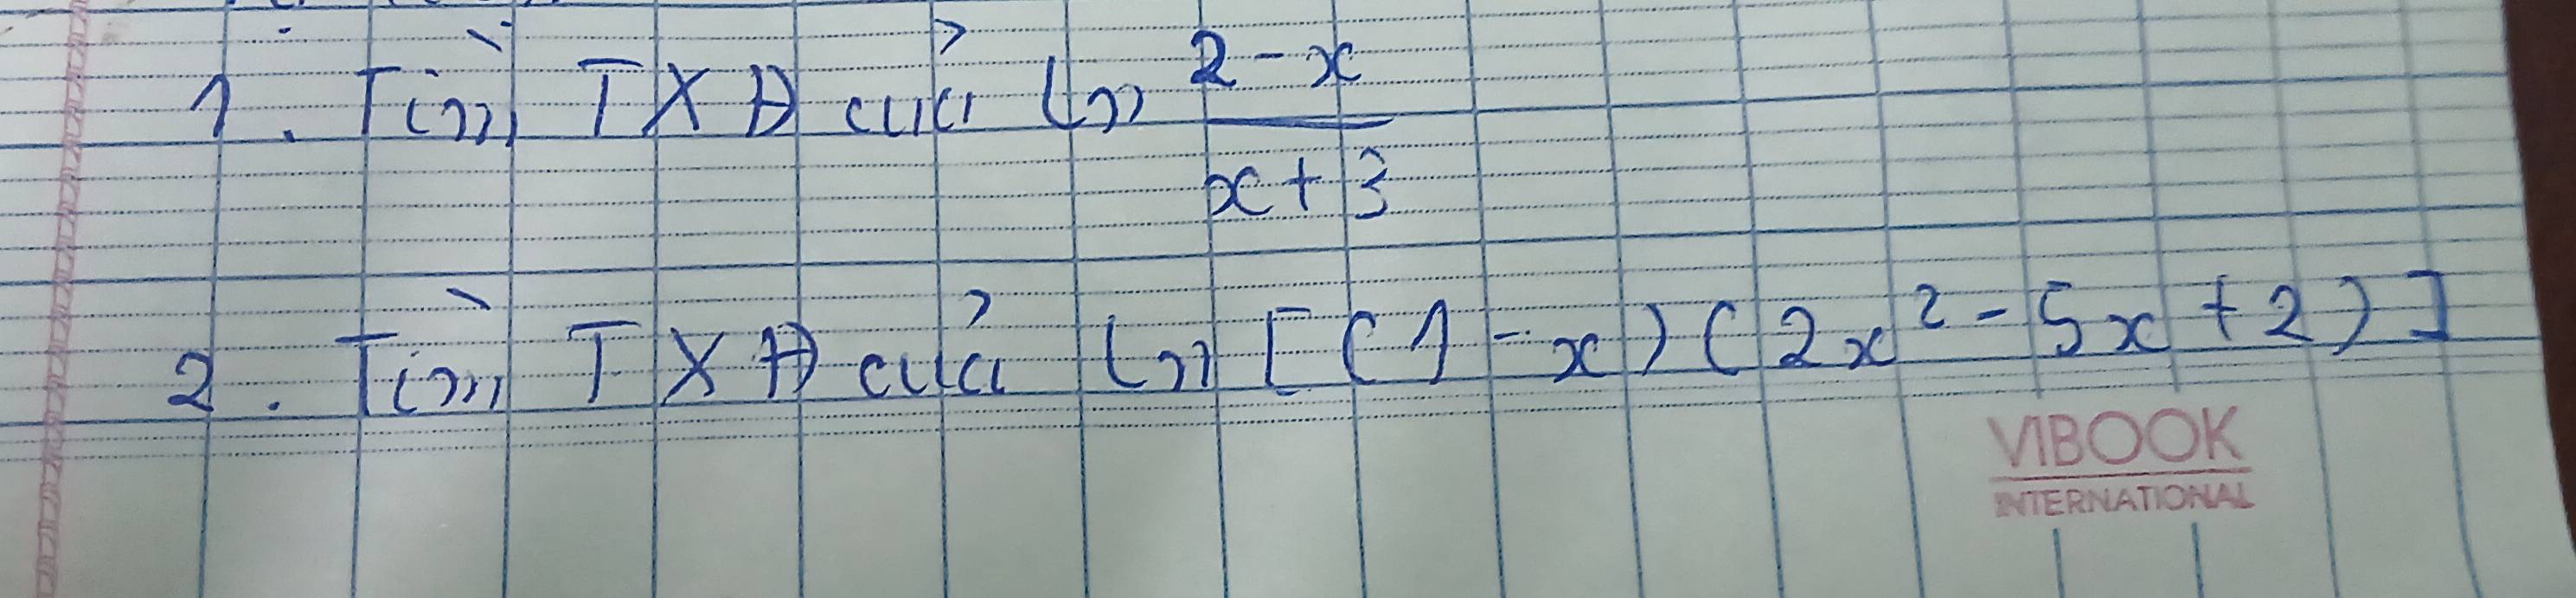 1. Tìm TXĐ của ln \frac{2-x}{x+3}
2. Tìm TXĐ của ln [(1-x)(2x²-5x+2)]
VIBOOK
INTERNATIONAL